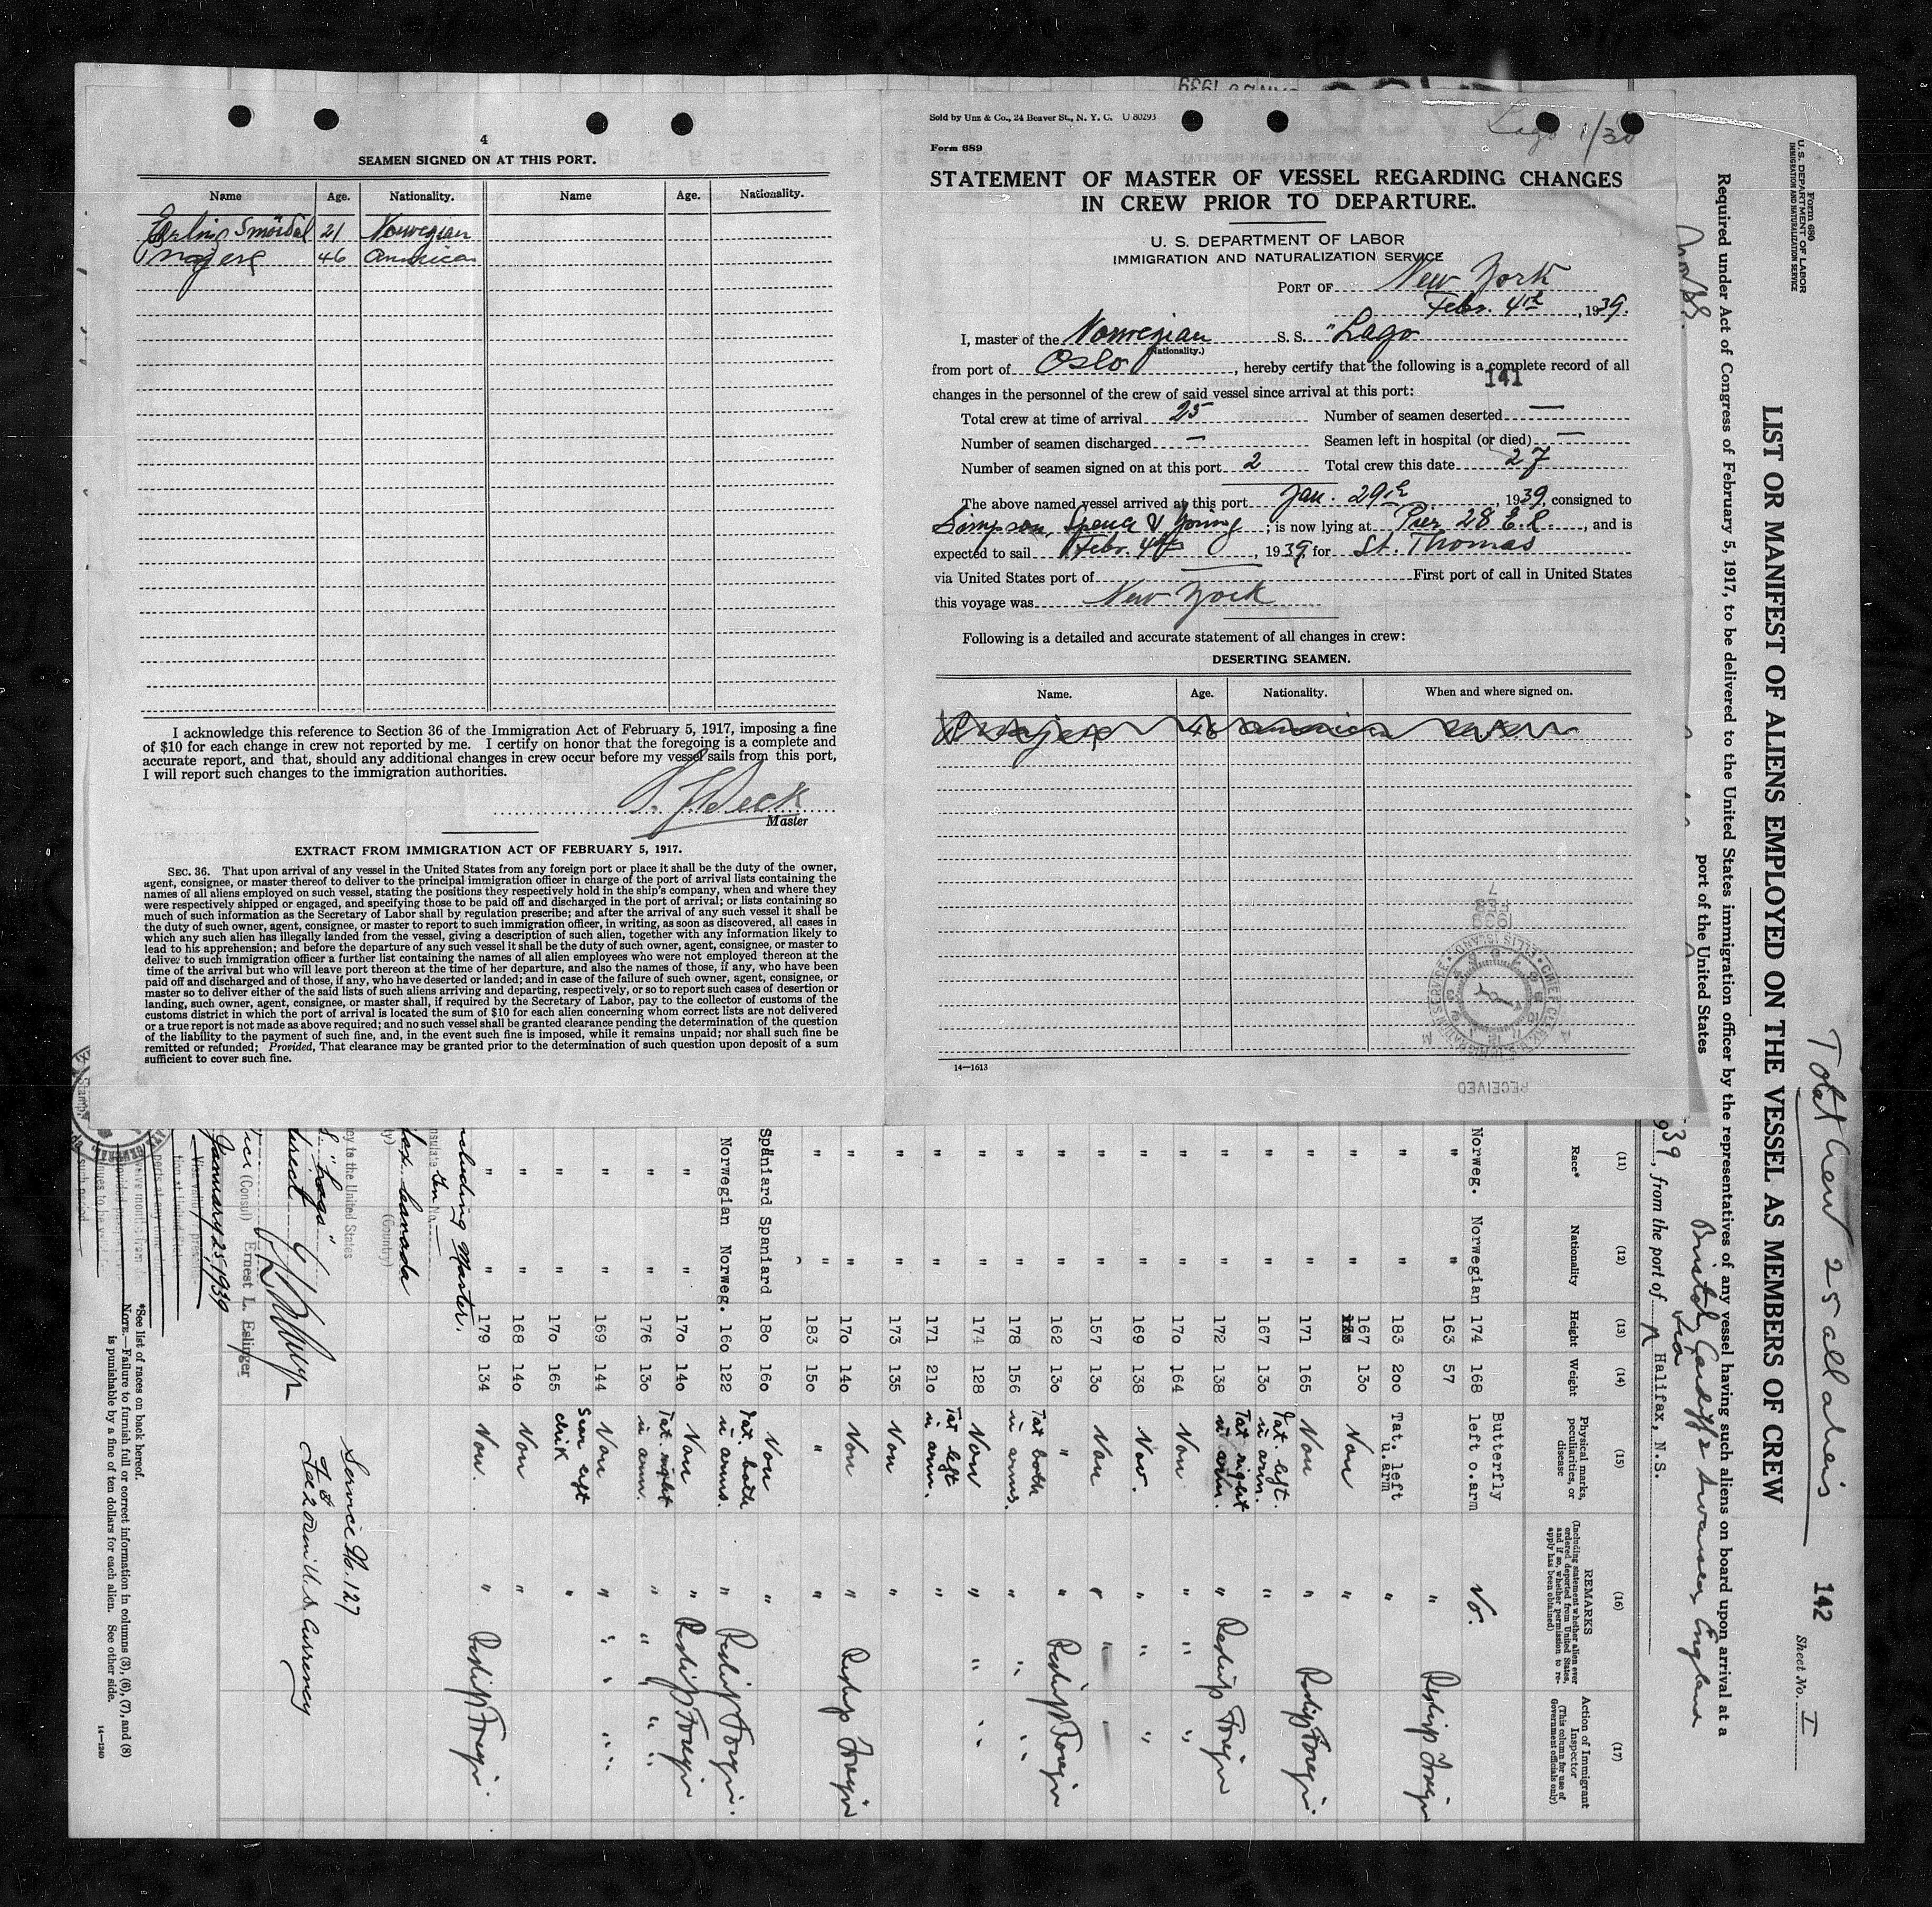 4
SEAMEN SIGNED ON AT THIS PORT.
Name Age. Nationality. Name Age. Nationality.
Erling Smördal 21 Norwegian
46 American
I acknowledge this reference to Section 36 of the Immigration Act of February 5, 1917, imposing a fine
of $10 for each change in crew not reported by me. I certify on honor that the foregoing is a complete and
accurate report, and that, should any additional changes in crew occur before my vessel sails from this port,
I will report such changes to the immigration authorities.
Master
EXTRACT FROM IMMIGRATION ACT OF FEBRUARY 5, 1917.
SEC. 36. That upon arrival of any vessel in the United States from any foreign port or place it shall be the duty of the owner,
agent, consignee, or master thereof to deliver to the principal immigration officer in charge of the port of arrival lists containing the
names of all aliens employed on such vessel, stating the positions they respectively hold in the ship's company, when and where they
were respectively shipped or engaged, and specifying those to be paid off and discharged in the port of arrival; or lists containing so
much of such information as the Secretary of Labor shall by regulation prescribe; and after the arrival of any such vessel it shall be
the duty of such owner, agent, consignee, or master to report to such immigration officer, in writing, as soon as discovered, all cases in
which any such alien has illegally landed from the vessel, giving a description of such alien, together with any information likely to
lead to his apprehension; and before the departure of any such vessel it shall be the duty of such owner, agent, consignee, or master to
deliver to such immigration officer a further list containing the names of all alien employees who were not employed thereon at the
time of the arrival but who will leave port thereon at the time of her departure, and also the names of those, if any, who have been
paid off and discharged and of those, if any, who have deserted or landed; and in case of the failure of such owner, agent, consignee, or
master so to deliver either of the said lists of such aliens arriving and departing, respectively, or so to report such cases of desertion or
landing, such owner, agent, consignee, or master shall, if required by the Secretary of Labor, pay to the collector of customs of the
customs district in which the port of arrival is located the sum of $10 for each alien concerning whom correct lists are not delivered
or a true report is not made as above required; and no such vessel shall be granted clearance pending the determination of the question
of the liability to the payment of such fine, and, in the event such fine is imposed, while it remains unpaid; nor shall such fine be
remitted or refunded; Provided, That clearance may be granted prior to the determination of such question upon deposit of a sum
sufficient to cover such fine.
Sold by Unz & Co., 24 Beaver St., N. Y. C. U 80293
Lago 1/30
Form 689
STATEMENT OF MASTER OF VESSEL REGARDING CHANGES
IN CREW PRIOR TO DEPARTURE.
U. S. DEPARTMENT OF LABOR
IMMIGRATION AND NATURALIZATION SERVICE
PORT OF New York
Febr. 4th, 1939.
I, master of the Norwegian S. S. "Lago
(Nationality.)
from port of Oslo, hereby certify that the following is a complete record of all
141
changes in the personnel of the crew of said vessel since arrival at this port:
Total crew at time of arrival 25 Number of seamen deserted —
Number of seamen discharged — Seamen left in hospital (or died) —
Number of seamen signed on at this port 2 Total crew this date 27
The above named vessel arrived at this port Jan. 29th, 1939, consigned to
Simpson, Spence & Young; is now lying at Pier 28 E.R., and is
expected to sail Febr. 4th, 1939, for St. Thomas
via United States port of — First port of call in United States
this voyage was New York
Following is a detailed and accurate statement of all changes in crew:
DESERTING SEAMEN.
Name. Age. Nationality. When and where signed on.
46 American
1939
FEB
7
14—1613
RECEIVED
Total Crew 25 all aliens
142
Sheet No. I
Form 680
U. S. DEPARTMENT OF LABOR
IMMIGRATION AND NATURALIZATION SERVICE
LIST OR MANIFEST OF ALIENS EMPLOYED ON THE VESSEL AS MEMBERS OF CREW
Required under Act of Congress of February 5, 1917, to be delivered to the United States immigration officer by the representatives of any vessel having such aliens on board upon arrival at a
port of the United States
Bristol, Cardiff & Swansea, England
Via
39, from the port of Halifax, N.S.
(11) (12) (13) (14) (15) (16) (17)
Race* Nationality Height Weight Physical marks, peculiarities, or disease
REMARKS
(Including statement whether alien ever ordered deported from United States, and if so, whether permission to reapply has been obtained)
Action of Immigrant Inspector
(This column for use of Government officials only)
Norweg. Norwegian 174 168 Butterfly left o.arm No.
" " 163 57 " Reship Foreign
" " 183 200 Tat. left u.arm "
" " 167 130 Non "
" " 171 165 Non " Reship Foreign
" " 167 130 Tat. left in arm. "
" " 172 138 Tat right in arm. " Reship Foreign
" " 170 164 Non " " "
" " 169 138 Non. " " "
" " 157 130 Non "
" " 162 130 " " Reship Foreign
" " 178 156 Tat both in arms. " " "
" " 174 128 Non " " "
" " 171 210 Tat left in arm. "
" " 173 135 Non "
" " 170 140 Non " Reship Foreign
" " 183 150 " "
Spaniard Spaniard 180 160 Non "
Norwegian Norweg. 160 122 Tat. both in arms. " Reship Foreign.
" " 170 140 Non " Reship Foreign
" " 176 130 Tat. right in arm. " " "
" " 169 144 Non " " "
" " 170 165 Scar left chik "
" " 168 140 Non "
" " 179 134 Non. " Reship Foreign.
including Master.
Canada
(Country)
to the United States
S. "Lago"
direct
(Consul) Ernest L. Eslinger
January 25, 1939
Service No. 127
Fee 2.00 in U.S. Currency
*See list of races on back hereof.
NOTE.—Failure to furnish full or correct information in columns (3), (6), (7), and (8)
is punishable by a fine of ten dollars for each alien. See other side.
14—1240